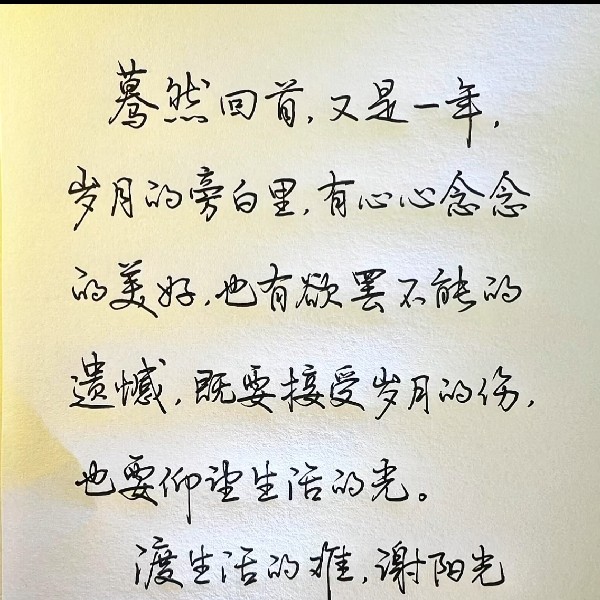 蓦然回首,又是一年,
岁月的旁白里,有心心念念
的美好,也有欲罢不能的
遗憾,既要接受岁月的伤,
也要仰望生活的光。
渡生活的难,谢阳光